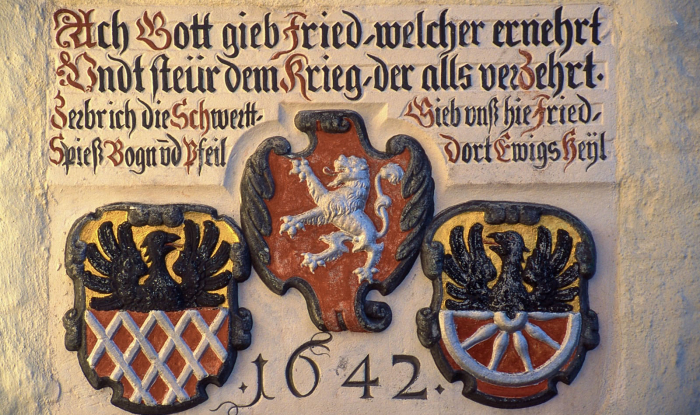 Ach Gott gieb Fried, welcher ernehrt
Vndt steür dem Krieg, der alls verZehrt.
Zerbrich die Schwertt-
Spieß Bogn vd Pfeil
Gieb vnß hie Fried-
dort Ewigs Heÿl
.1642.